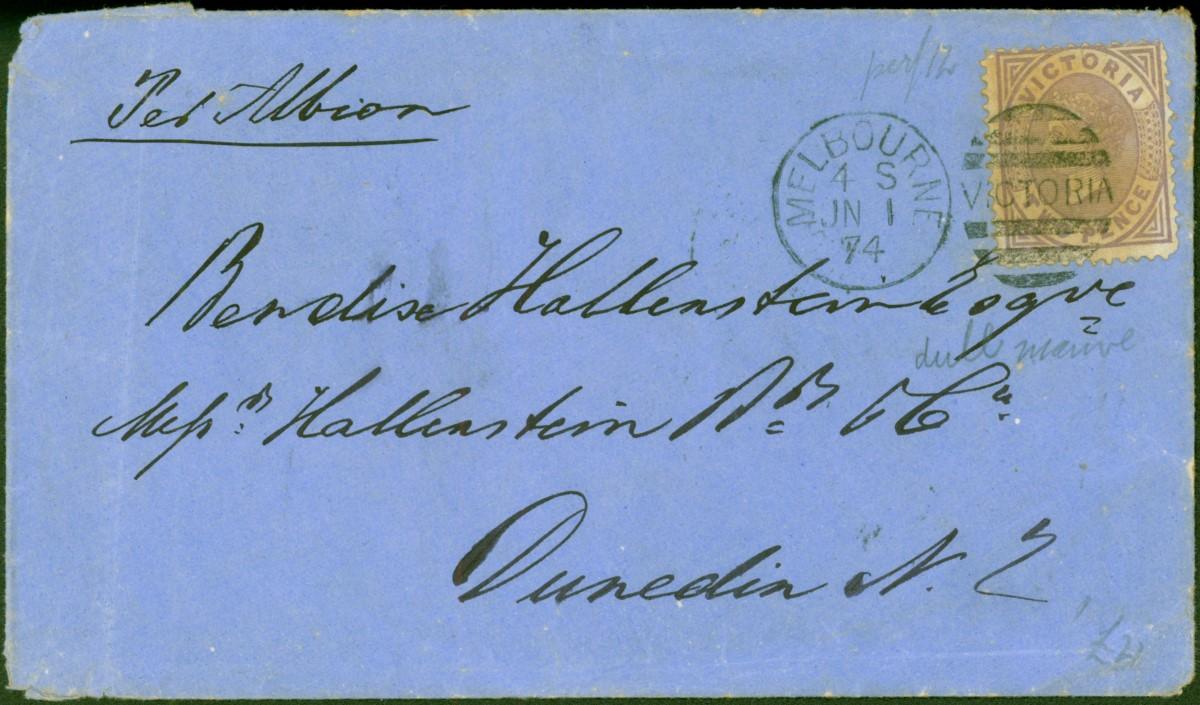 Per Albion
perf 12
VICTORIA
PENCE
MELBOURNE
4 S
JN 1
74
VICTORIA
Bendix Hallenstein Esqre
dull mauve
Messrs Hallenstein Brs & Co
Dunedin N. Z